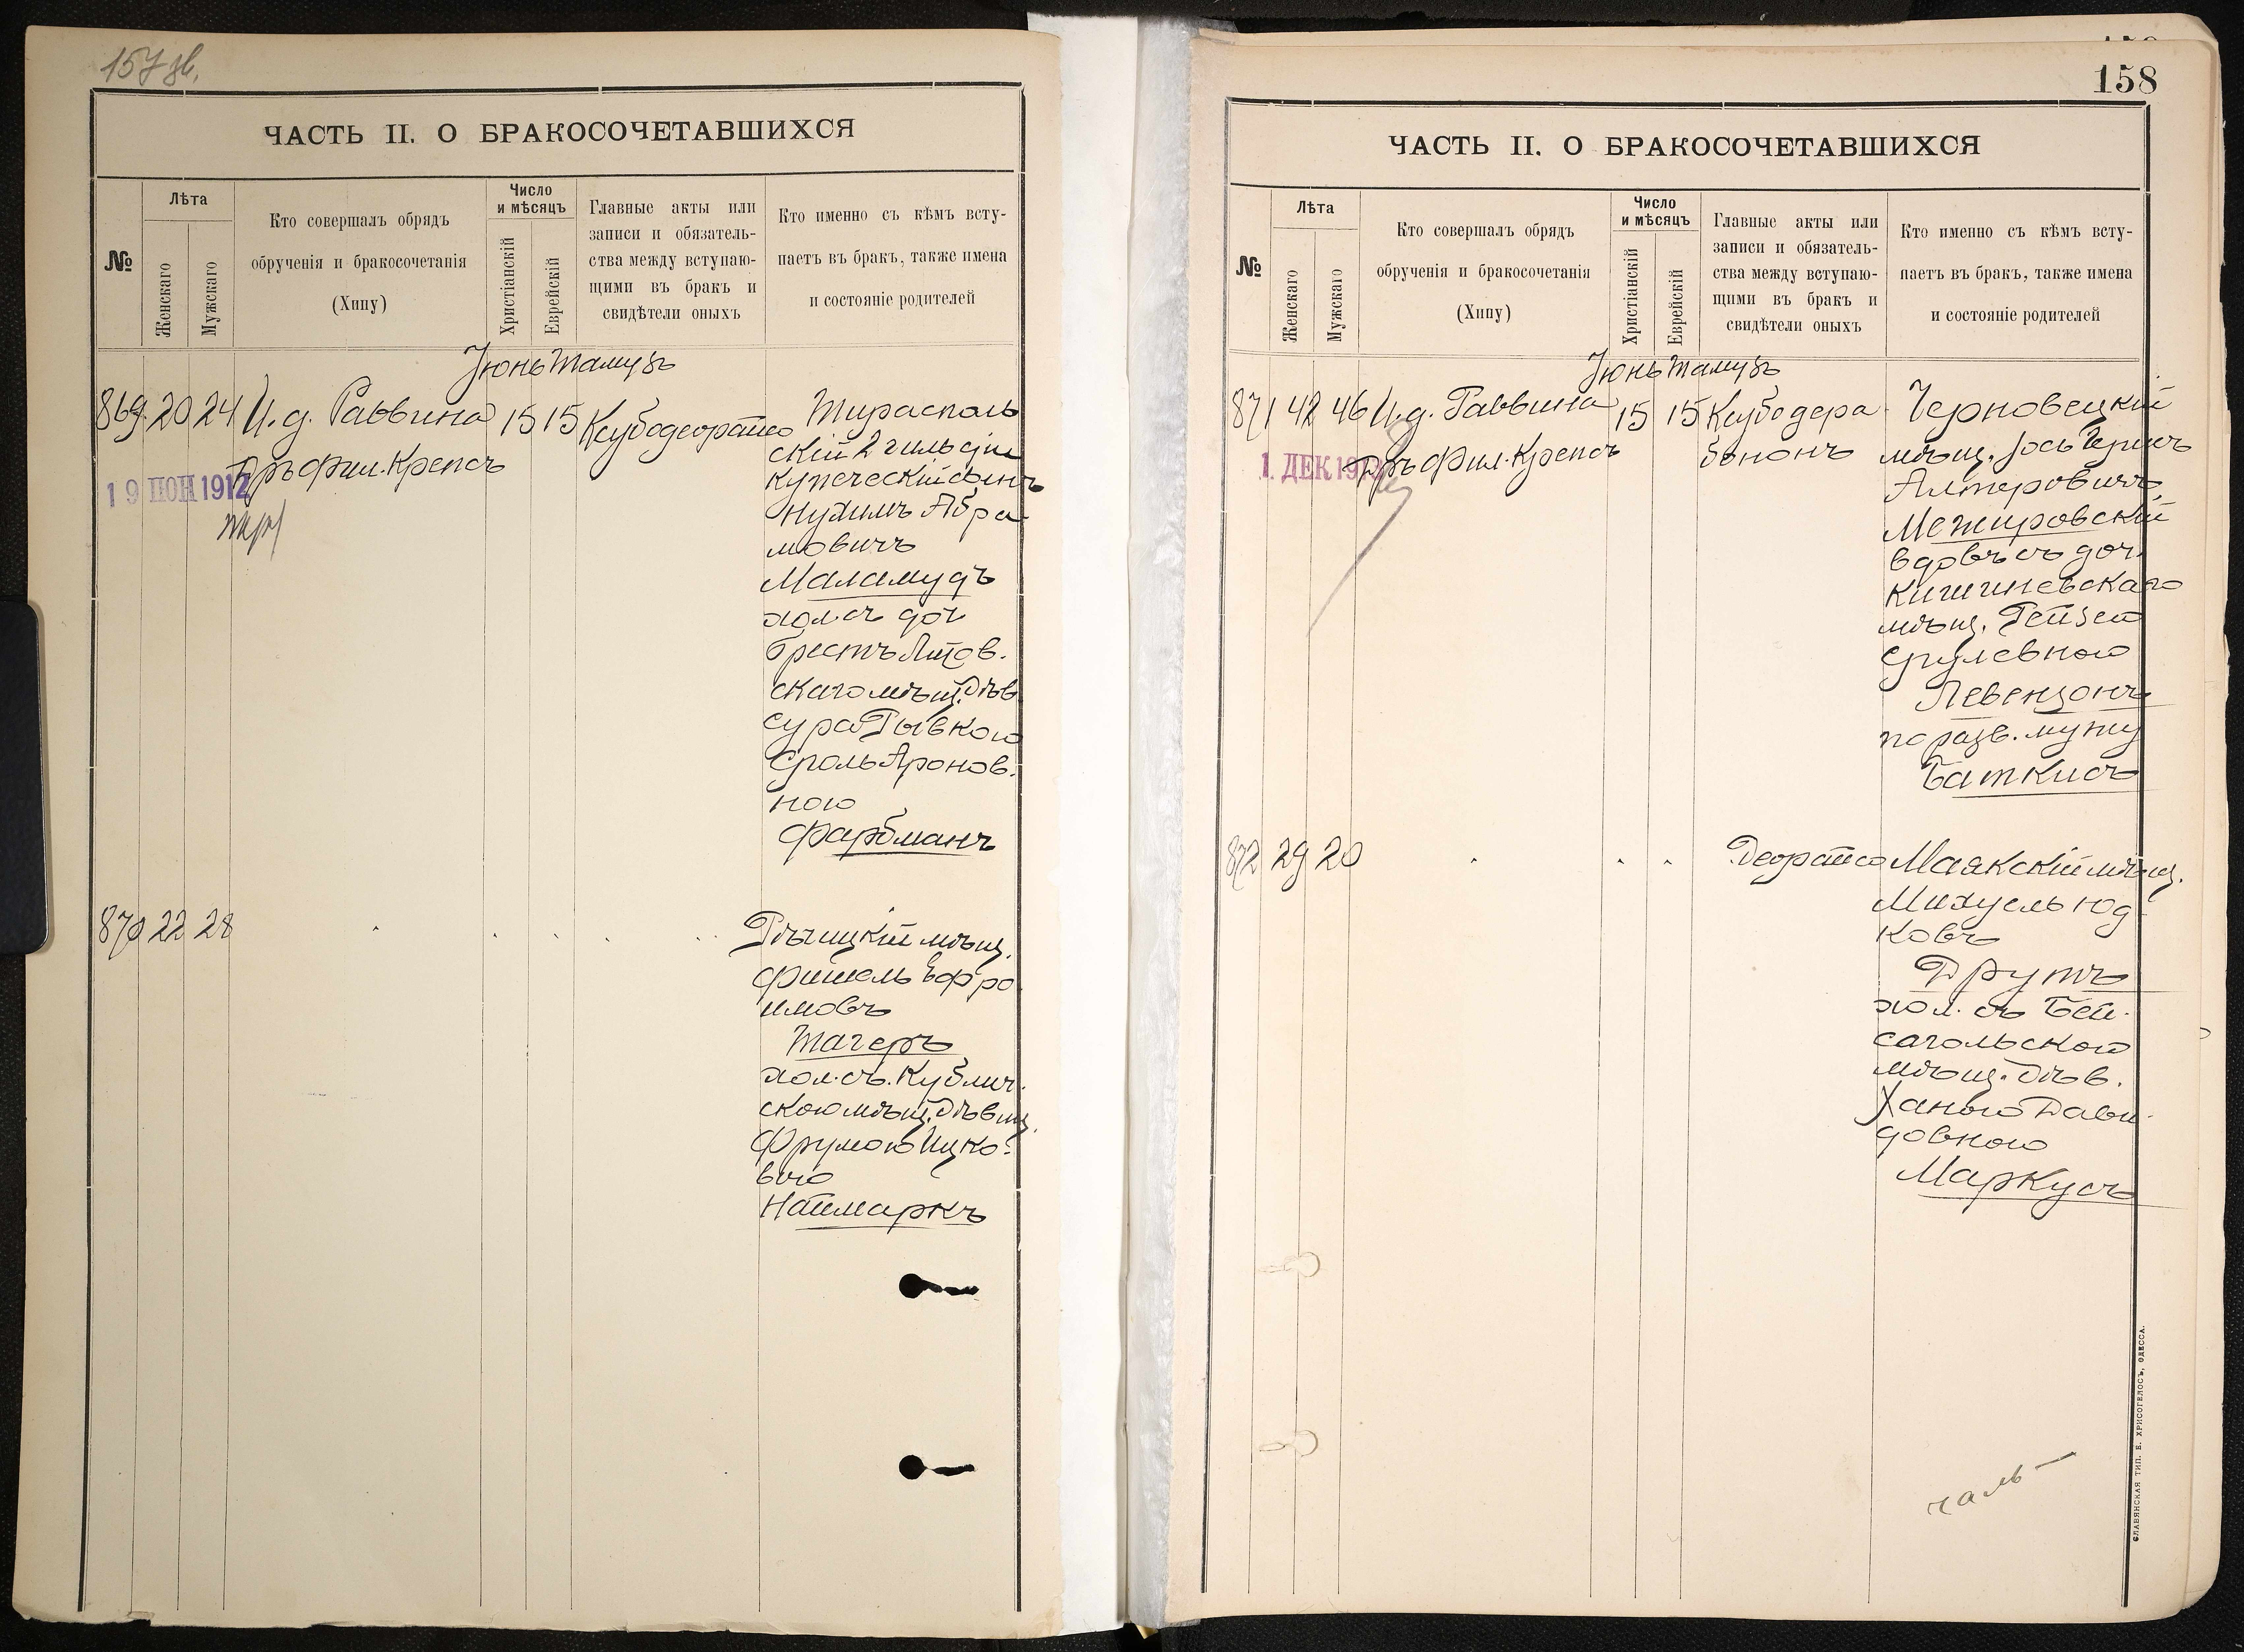 157 зв.
ЧАСТЬ II. О БРАКОСОЧЕТАВШИХСЯ
№
Лѣта
Женскаго
Мужскаго
Кто совершалъ обрядъ
обрученія и бракосочетанія
(Хипу)
Число
и мѣсяцъ
Христіанскій
Еврейскій
Главные акты или
записи и обязатель-
ства между вступаю-
щими въ бракъ и
свидѣтели оныхъ
Кто именно съ кѣмъ всту-
паетъ въ бракъ, также имена
и состояніе родителей
Іюнь Тамузъ
869 20 24 И.д. Раввина 15 15
Дръ Фил. Крепсъ
19 НОЯ 1912
Тирасполь
скій 2 гильдіи
купеческій сынъ
Нухимъ Абра
мовичъ
Маламудъ
хол. съ доч
Брестъ Литов.
скаго мѣщ. дѣв
Сура Рывкою
Сроль Аронов.
ною
Фарбманъ
870 22 28
Рѣчицкій мѣщ.
Фишель Эфро
имовъ
Тагеръ
хол. съ. Кублич.
скою мѣщ. дѣвиц.
Фрумою Ицко-
вою
Наймаркъ
158
ЧАСТЬ II. О БРАКОСОЧЕТАВШИХСЯ
№
Лѣта
Женскаго
Мужскаго
Кто совершалъ обрядъ
обрученія и бракосочетанія
(Хипу)
Число
и мѣсяцъ
Христіанскій
Еврейскій
Главные акты или
записи и обязатель-
ства между вступаю-
щими въ бракъ и
свидѣтели оныхъ
Кто именно съ кѣмъ всту-
паетъ въ бракъ, также имена
и состояніе родителей
Іюнь Тамузъ
871 42 46 И.д. Раввина 15 15 Кубодера
Дръ Фил. Крепсъ
бононъ
1. ДЕК
Черновецкій
мѣщ. Іось Герщъ
Алтеровичъ
Межировскій
вдовъ съ доч.
Кишиневскаго
мѣщ. Рейзей
Срулевною
Левензонъ
по разв. мужу
Баткисъ
872 29 20
Деорайсо
Маякскій мѣщ.
Михуель Юд
ковъ
Друтъ
хол. съ Бей-
сагольской
мѣщ. дѣв.
Ханою Дави
довною
Маркусъ
СЛАВЯНСКАЯ ТИП. Е. ХРИСОГЕЛОСЪ, ОДЕССА.